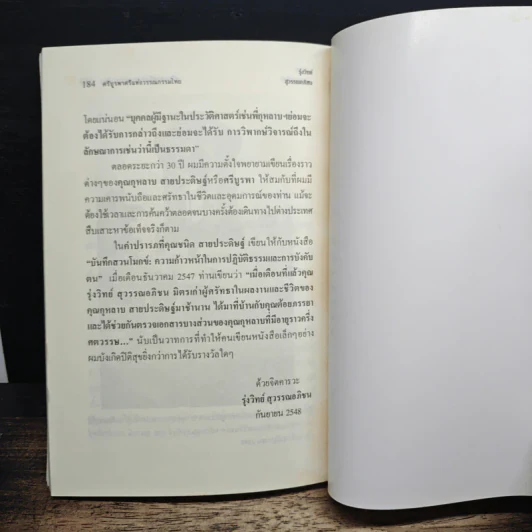 รุ่งวิทย์
184 ศรีบูรพาศรีแห่งวรรณกรรมไทย สุวรรณอภิชน
โดยแน่นอน "บุคคลผู้มีฐานะในประวัติศาสตร์เช่นพี่กุหลาบฯย่อมจะ
ต้องได้รับการกล่าวถึงและย่อมจะได้รับ การวิพากษ์วิจารณ์ถึงใน
ลักษณาการเช่นว่านี้เป็นธรรมดา"
ตลอดระยะกว่า 30 ปี ผมมีความตั้งใจพยายามเขียนเรื่องราว
ต่างๆของคุณกุหลาบ สายประดิษฐ์หรือศรีบูรพา ให้สมกับที่ผมมี
ความเคารพนับถือและศรัทธาในชีวิตและอุดมการณ์ของท่าน แม้จะ
ต้องใช้เวลาและการค้นคว้าตลอดจนบางครั้งต้องเดินทางไปต่างประเทศ
สืบเสาะหาข้อเท็จจริงก็ตาม
ในคำปรารภที่คุณชนิด สายประดิษฐ์ เขียนให้กับหนังสือ
"บันทึกสวนโมกข์: ความก้าวหน้าในการปฏิบัติธรรมและการบังคับ
ตน" เมื่อเดือนธันวาคม 2547 ท่านเขียนว่า "เมื่อเดือนที่แล้วคุณ
รุ่งวิทย์ สุวรรณอภิชน มิตรเก่าผู้ศรัทธาในผลงานและชีวิตของ
คุณกุหลาบ สายประดิษฐ์มาช้านาน ได้มาที่บ้านกับคุณต้อยภรรยา
และได้ช่วยกันตรวจเอกสารบางส่วนของคุณกุหลาบที่มีอายุราวครึ่ง
ศตวรรษ..." นับเป็นวาทการที่ทำให้คนเขียนหนังสือเล็กๆอย่าง
ผมบังเกิดปีติสุขยิ่งกว่าการได้รับรางวัลใดๆ
ด้วยจิตคารวะ
รุ่งวิทย์ สุวรรณอภิชน
กันยายน 2548